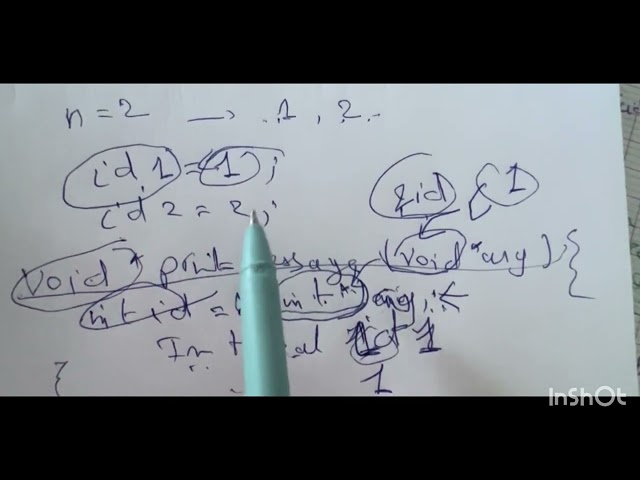 n = 2 → 1, 2.
id 1 = 1 ;
id 2 = 2 ;
&id 1
void * print message (void * arg) {
int id = int * arg ;
1
InShOt